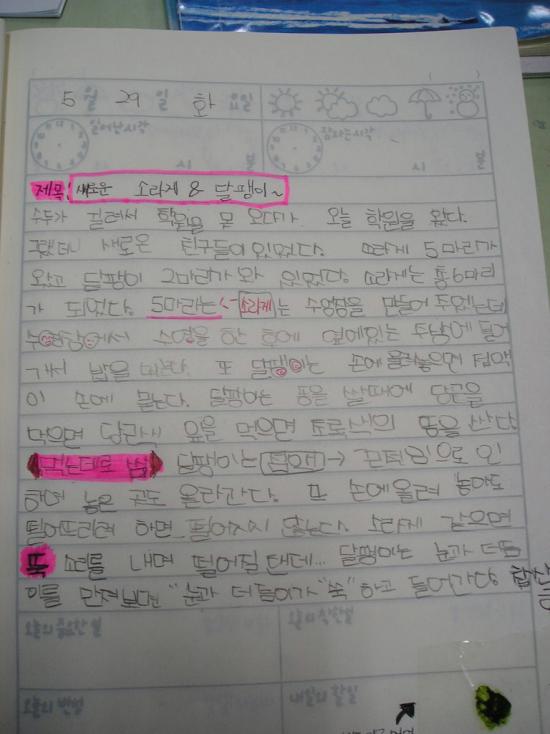 5월 29일 화요일
일어난시각 잠자는시각
시 분 시 분
제목: 새로운 소라게 & 달팽이~
수두가 걸려서 학원을 못 오다가 오늘 학원을 왔다.
그랬더니 새로운 친구들이 있었다. 소라게 5마리가
왔고 달팽이 2마리가 와 있었다. 소라게는 총 6마리
가 되었다. 5마리는 <-소라게는 수영장을 만들어 주었는데
수영장에서 수영을 한 후에 옆에있는 주남에 들어
가서 밥을 먹는다. 또 달팽이는 손에 올려놓으면 점액
이 손에 묻는다. 달팽이는 똥을 쌀때에 당근을
먹으면 당근색 잎을 먹으면 초록색의 똥을 싼다
먹는데로 쌈 달팽이는 점액 → 끈적임으로 인
하여 높은 곳도 올라간다. 또 손에 올려 놓아도
떨어뜨리려 하면 떨어지지 않는다. 소라게 같으면
뚝 소리를 내며 떨어질 텐데... 달팽이는 눈과 더듬
이를 만져보면 "눈과 더듬이가 "쏙" 하고 들어간다
오늘의 중요한 일 오늘의 착한일
오늘의 반성 내일의 할일